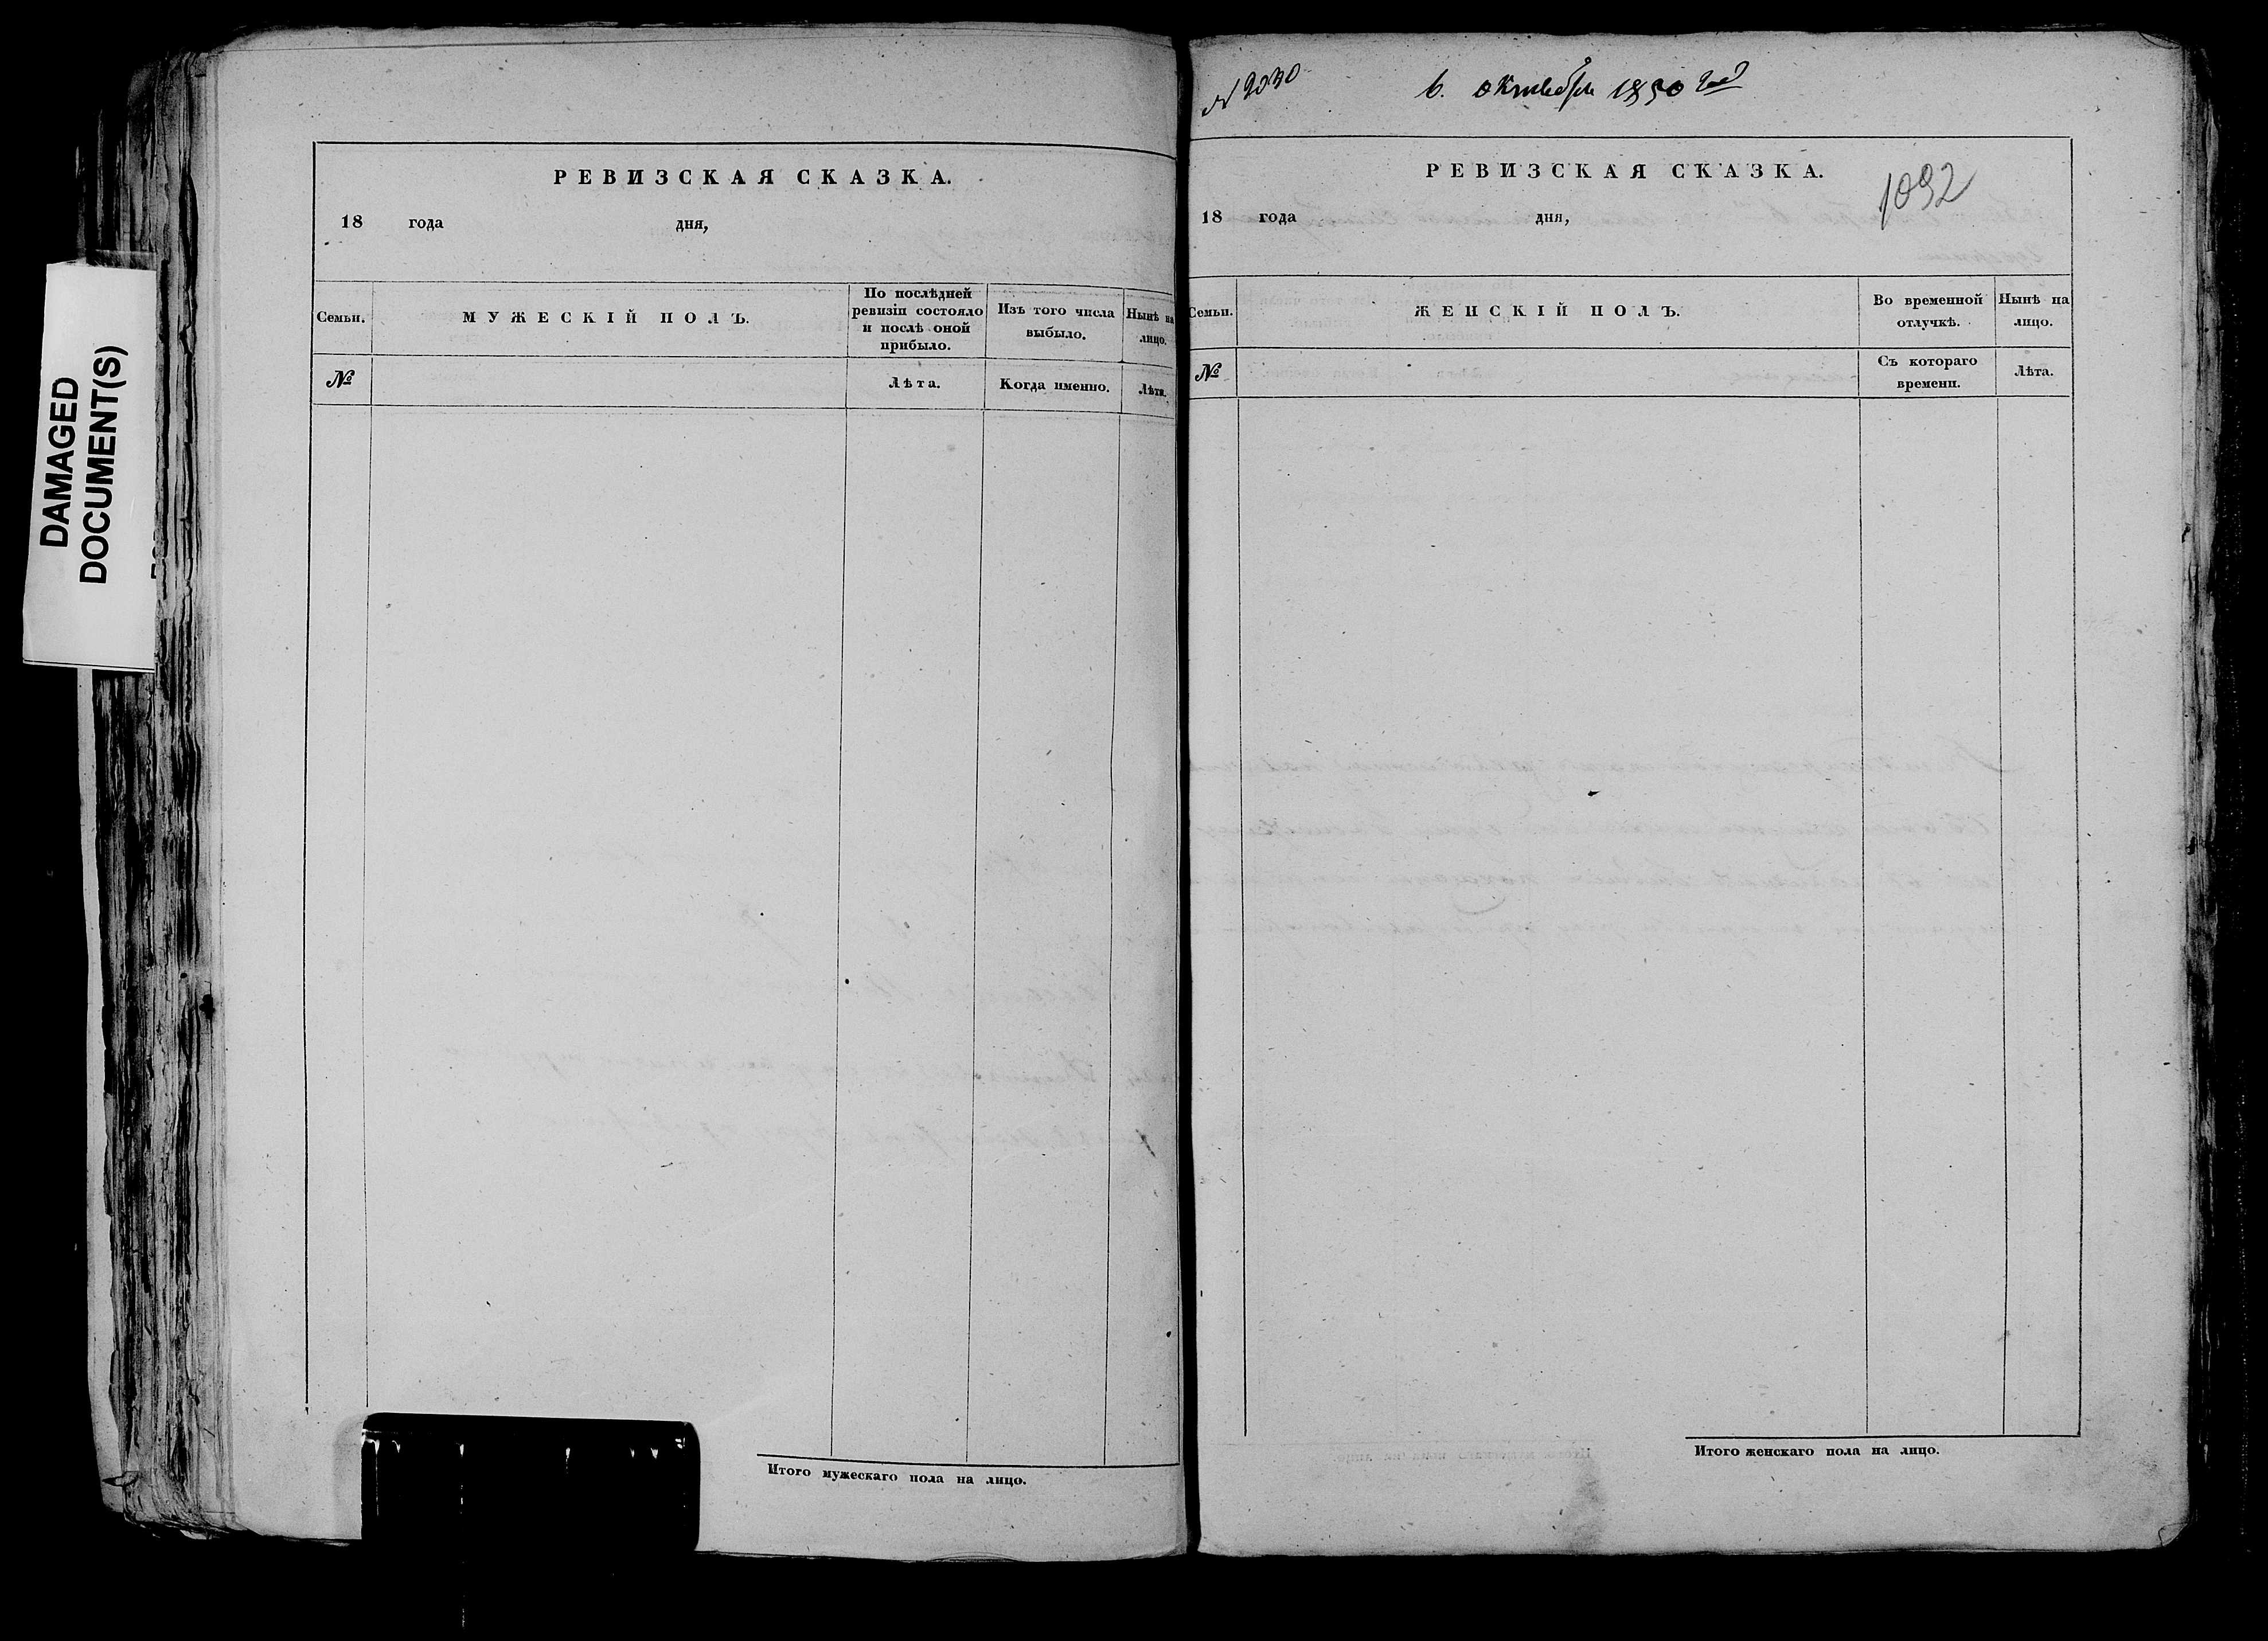 DAMAGED
DOCUMENT(S)
РЕВИЗСКАЯ СКАЗКА.
18 года дня,
Семьи.
МУЖЕСКІЙ ПОЛЪ.
По послѣдней
ревизіи состояло
и послѣ оной
прибыло.
Изъ того числа
выбыло.
Нынѣ на
лицо.
№
Лѣта.
Когда именно.
Лѣта.
Итого мужескаго пола на лицо.
6. октября 1850 года
РЕВИЗСКАЯ СКАЗКА.
1092
18 года дня,
Семьи.
ЖЕНСКІЙ ПОЛЪ.
Во временной
отлучкѣ.
Нынѣ на
лицо.
№
Съ котораго
времени.
Лѣта.
Итого женскаго пола на лицо.